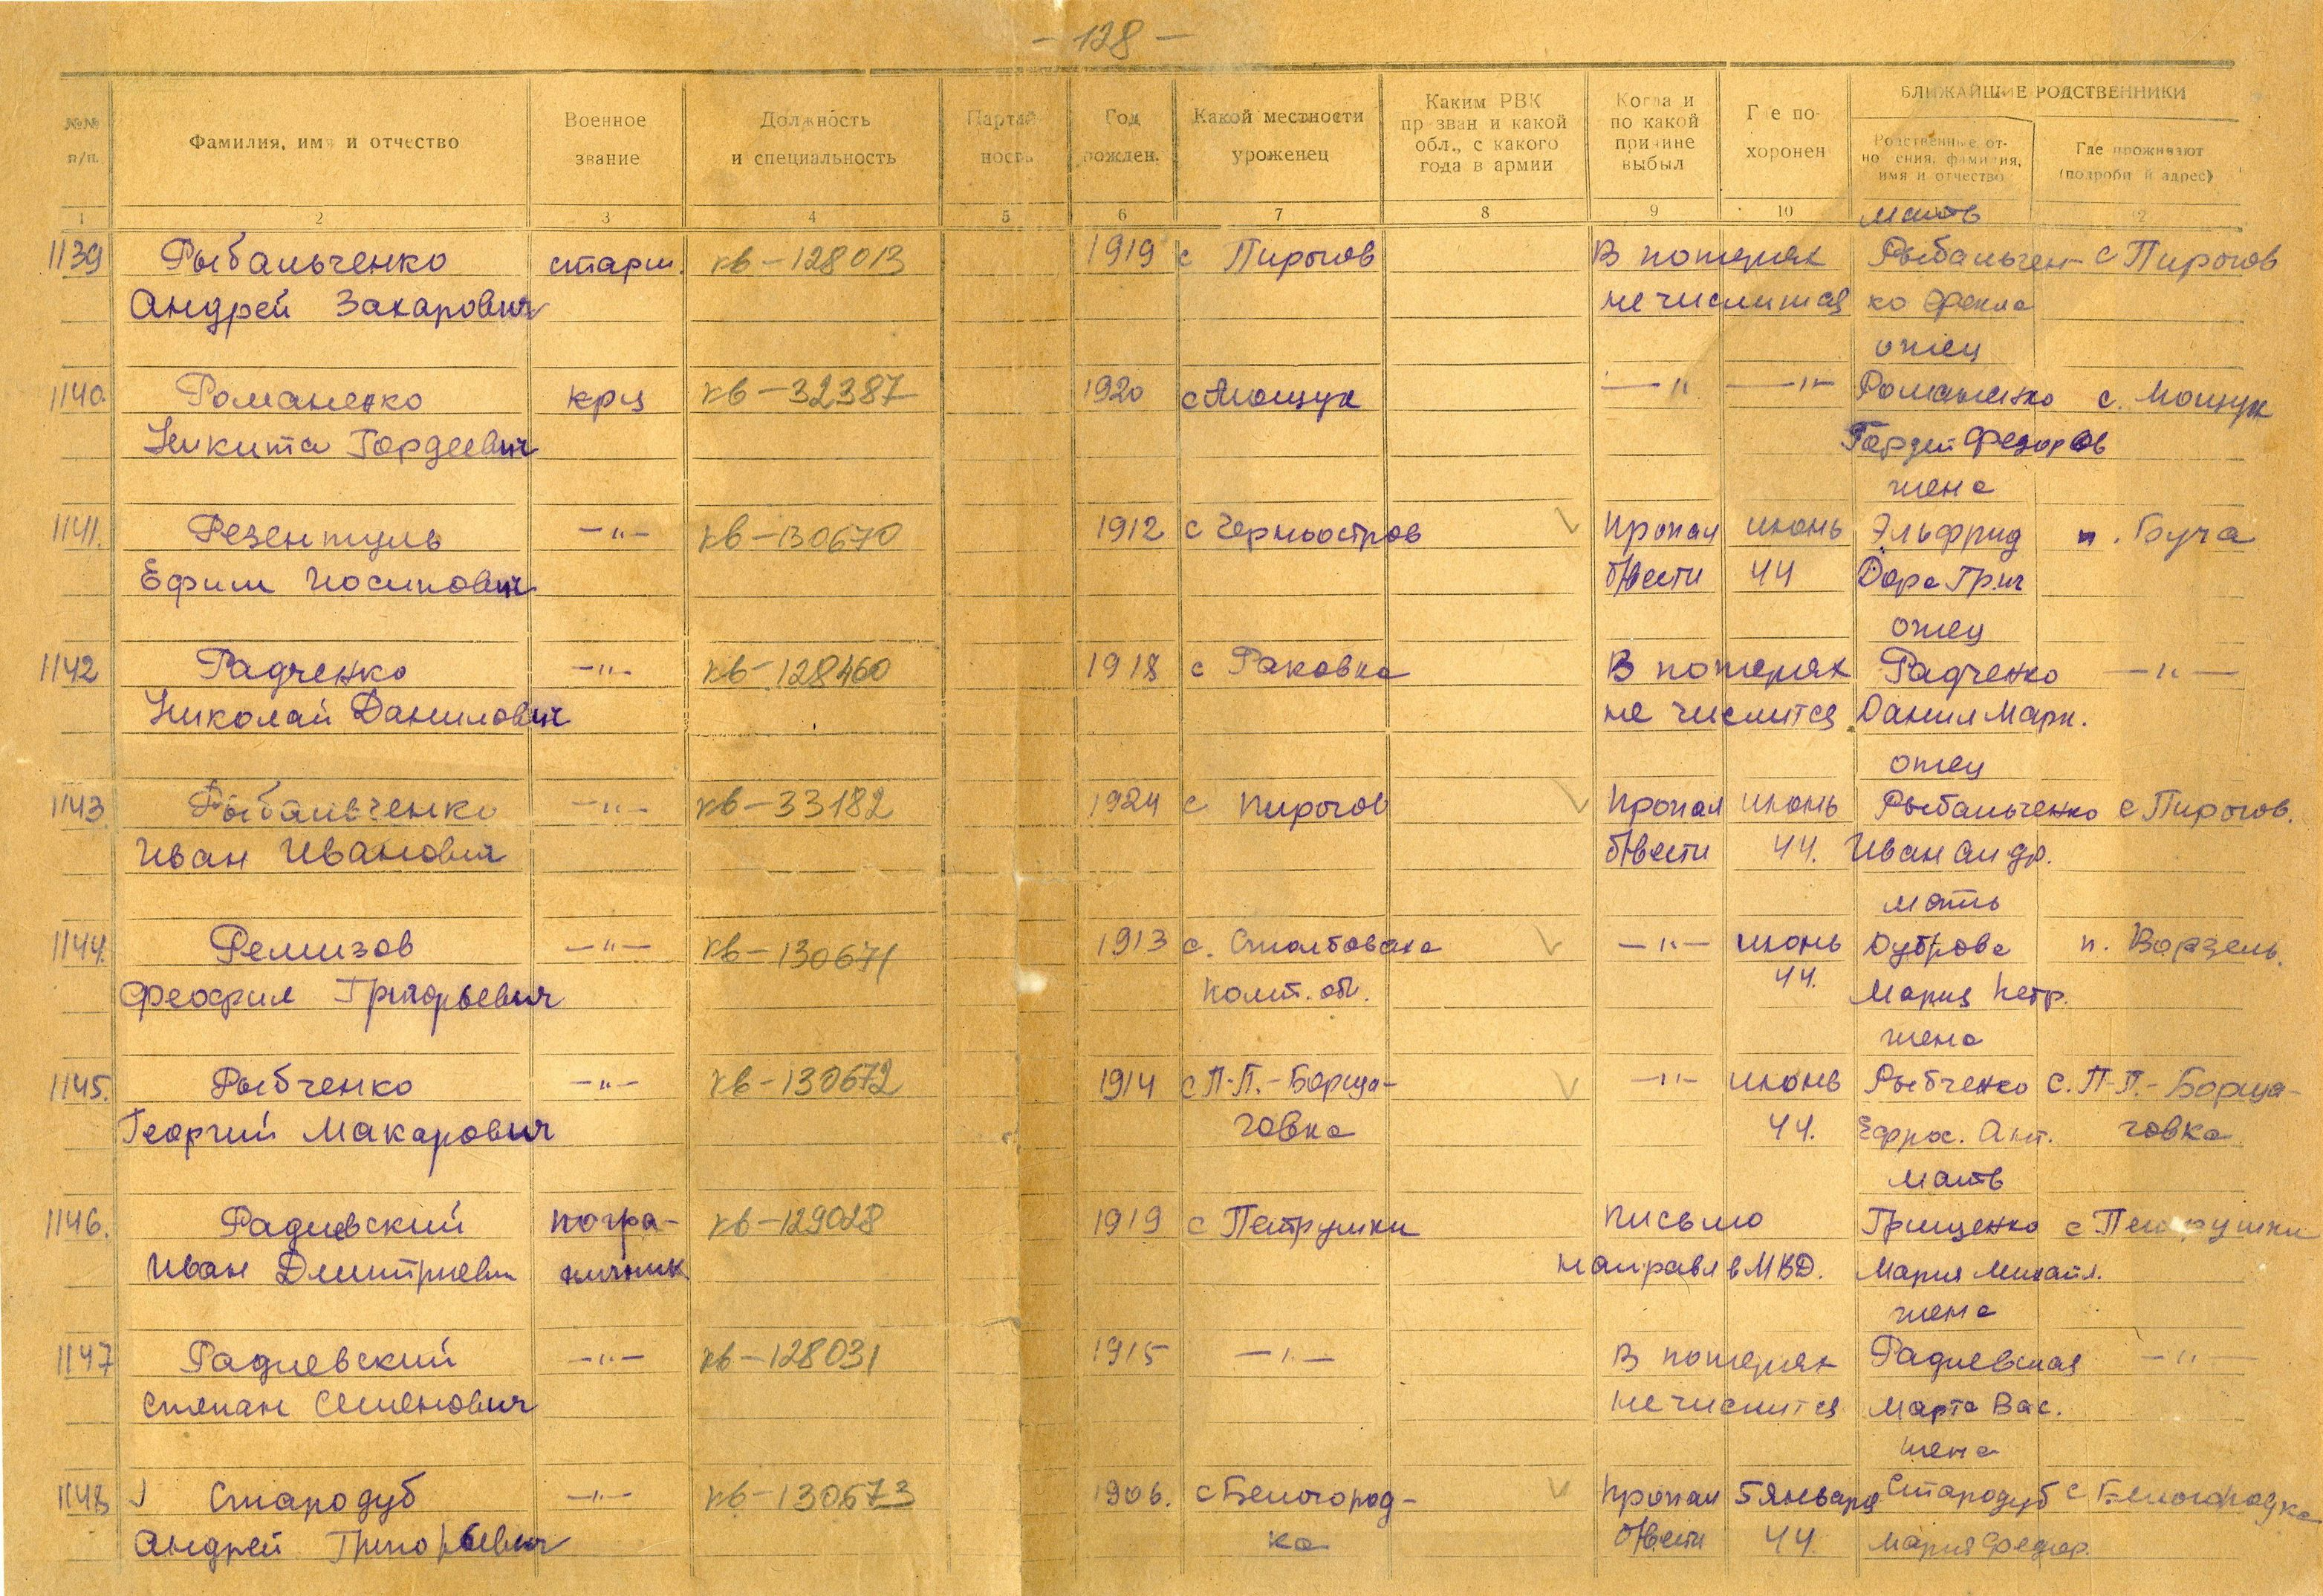 - 128 -
БЛИЖАЙШИЕ РОДСТВЕННИКИ
№№ п/п. Фамилия, имя и отчество Военное звание Должность и специальность Партий ность Год рожден. Какой местности уроженец Каким РВК призван и какой обл., с какого года в армии Когда и по какой причине выбыл Где похоронен Родственные отношения, фамилия, имя и отчество Где проживают (подробный адрес)
1 2 3 4 5 6 7 8 9 10 12
мать
1139 Рыбальченко старш. кв-128013 1919 с Пирогов В потерях Рыбальчен- с Пирогов
Андрей Захарович не числится ко Фекла
отец
1140. Романенко крц кв-32387 1920 с Мощун —"— —"— Романенко с. Мощун
Никита Гордеевич Гордей Федоров
жена
1141. Резентуль —"— кв-130670 1912 с Черноостров Пропал июнь Эльфрид п. Буча
Ефим Иосипович б/вести 44 Дора Григ
отец
1142 Радченко —"— кв-128460 1918 с Раковка В потерях Радченко —"—
Николай Данилович не числится Данил Марк.
отец
1143. Рыбальченко —"— кв-33182 1924 с Пирогов Пропал июнь Рыбальченко с Пирогов.
Иван Иванович б/вести 44. Иван Андр.
мать
1144. Ремизов —"— кв-130671 1913 с. —"— июнь Дуброва п. Ворзель.
Феофил Григорьевич обл. 44. Мария Петр.
жена
1145. Рыбченко —"— кв-130672 1914 с П-П.-Борща- —"— июнь Рыбченко с. П-П.-Борща-
Георгий Макарович говка 44. Ефрос. Ант. говка
мать
1146. Радиевский погра- кв-129028 1919 с Петрушки Письмо Грищенко с Петрушки
Иван Дмитриевич ничник направл в МВД. Мария Михайл.
жена
1147 Радиевский —"— кв-128031 1915 —"— В потерях Радиевская —"—
Степан Семенович не числится Марта Вас.
жена
1148 Стародуб —"— кв-130673 1906. с Белогород- Пропал 5 января Стародуб с Белогородка
Андрей Григорьевич ка б/вести 44. Мария Федор.